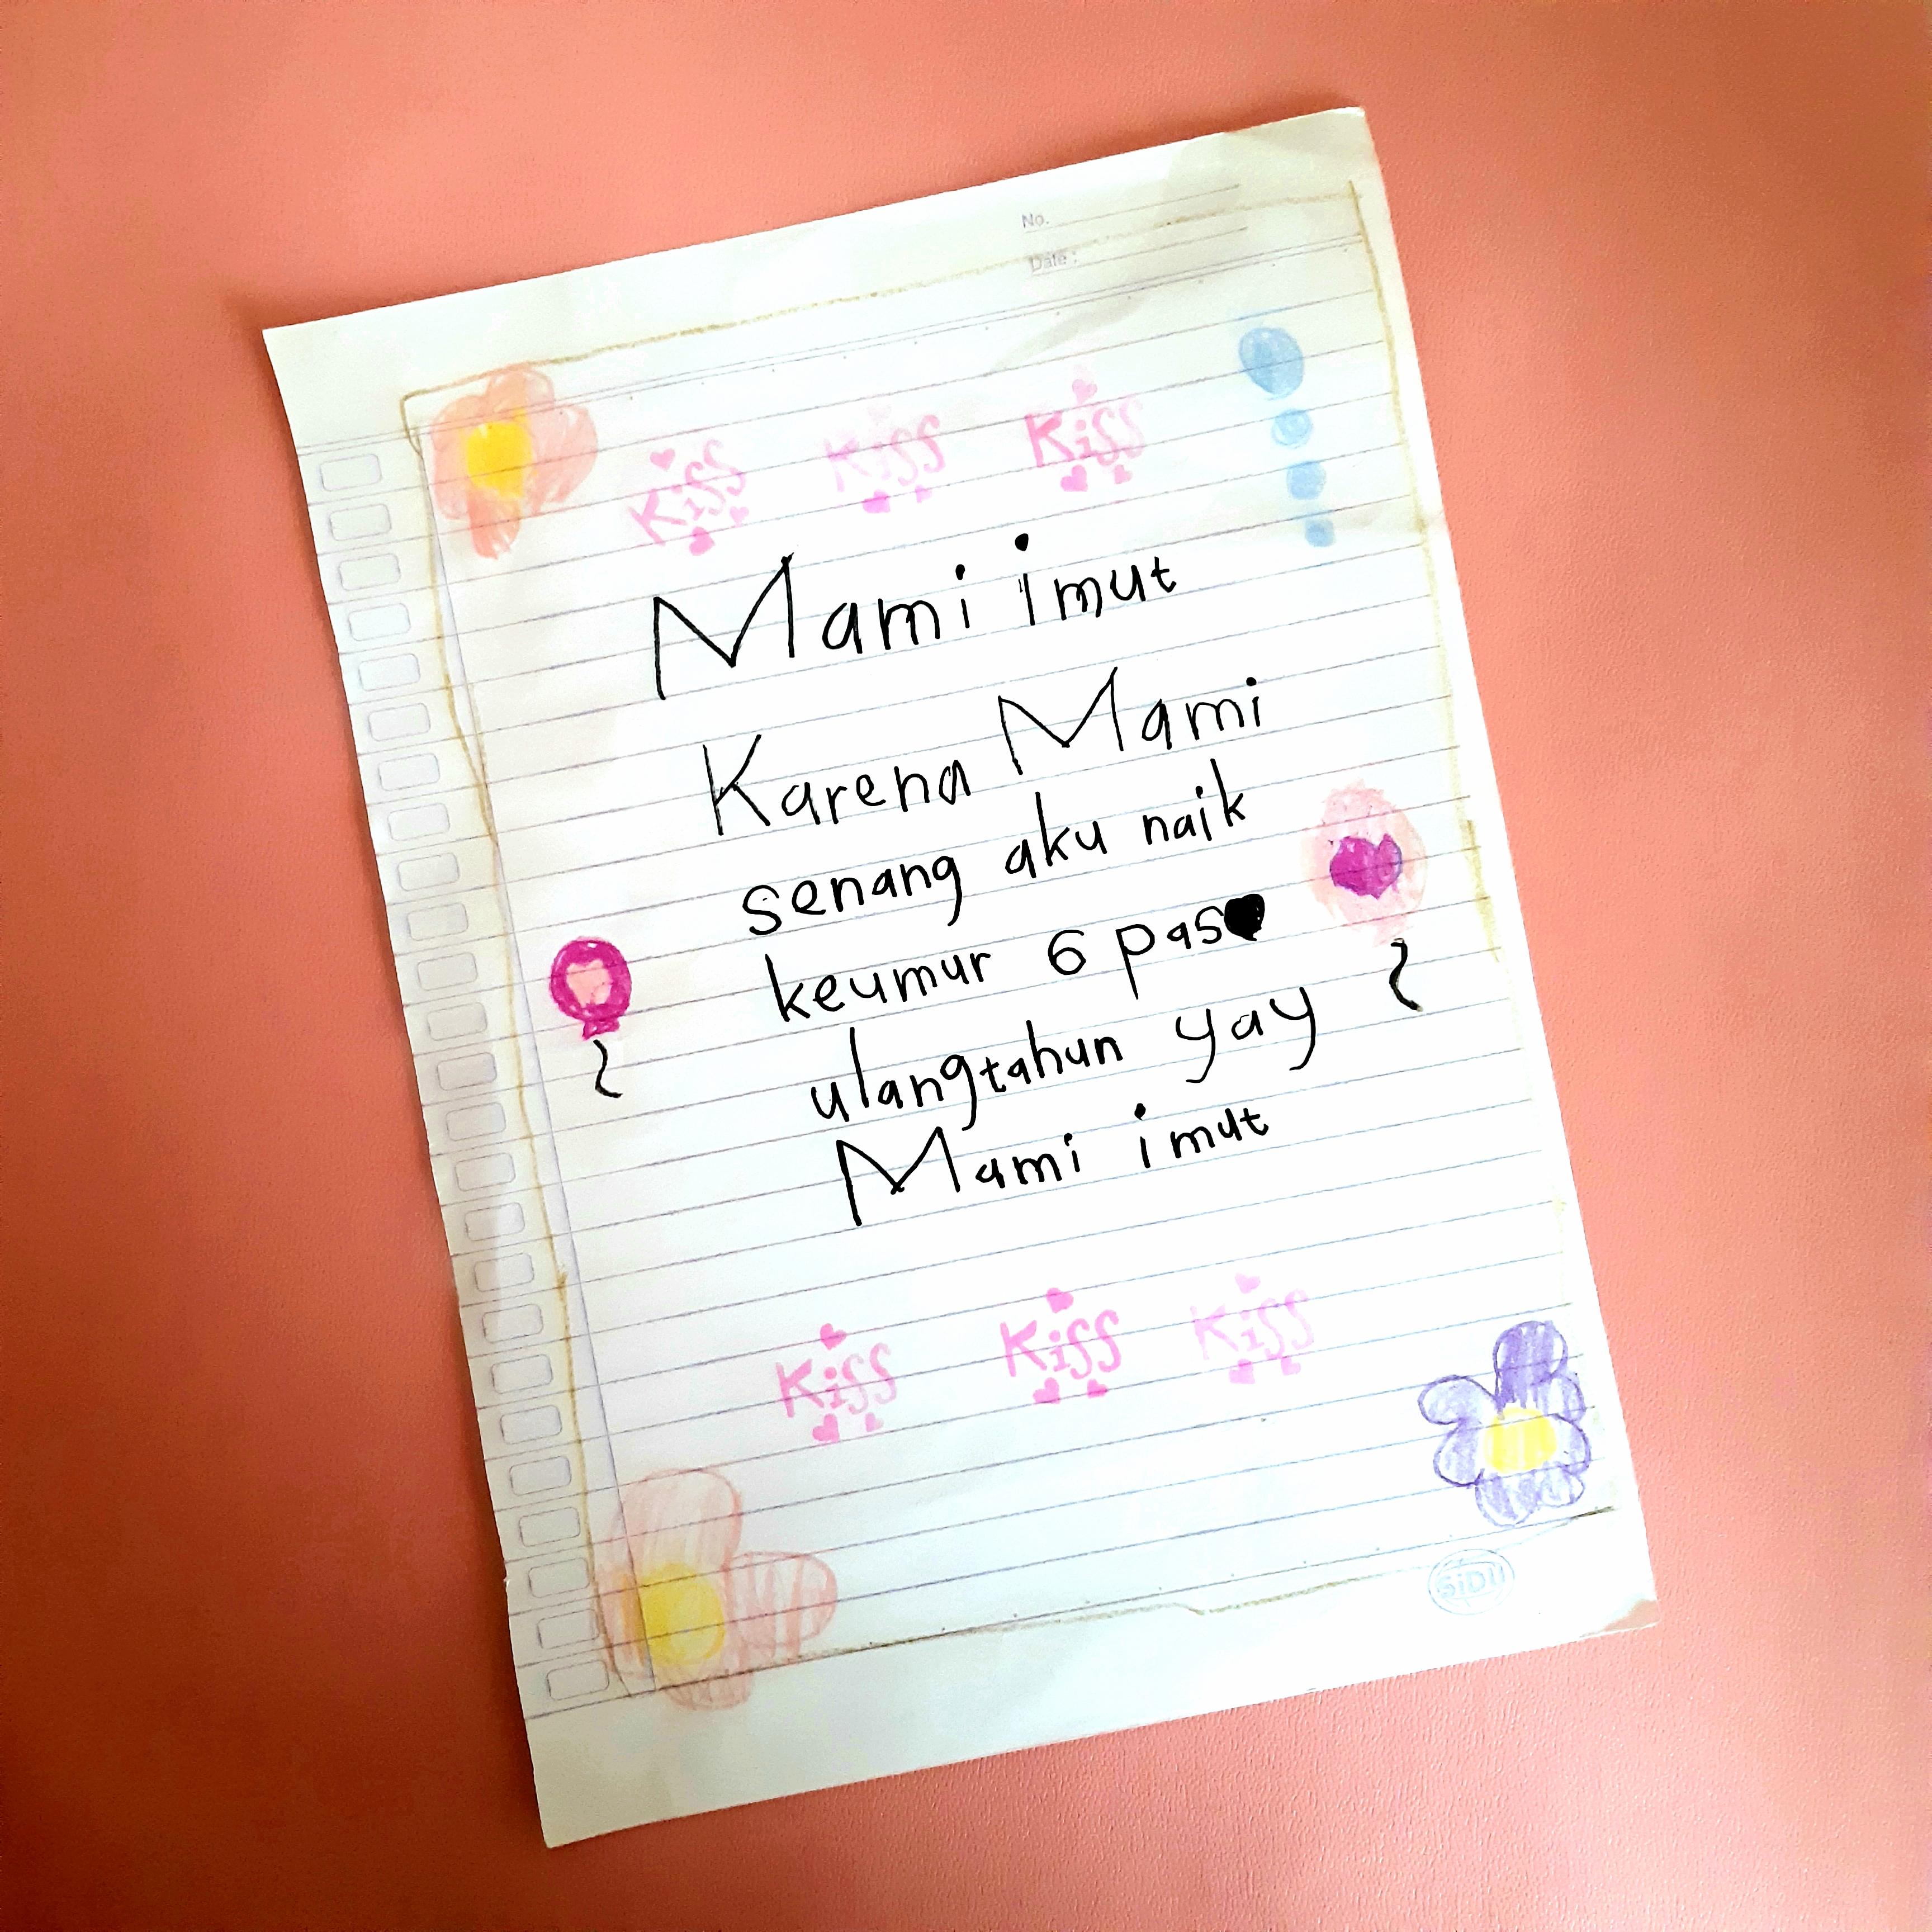 No.
Date :
Kiss Kiss Kiss
Mami imut
Karena Mami
senang aku naik
keumur 6 pas
ulangtahun yay
Mami imut
Kiss Kiss Kiss
SiDU